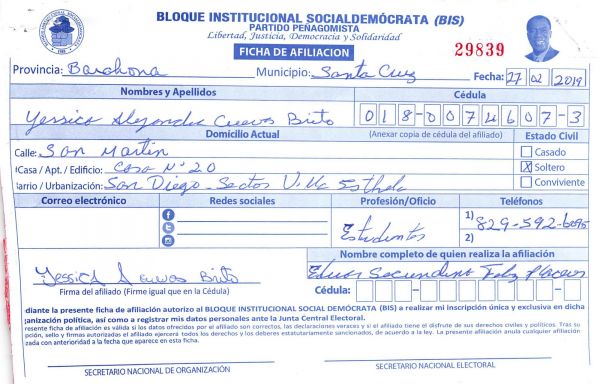 BLOQUE INSTITUCIONAL SOCIALDEMÓCRATA (BIS)
PARTIDO PEÑAGOMISTA
Libertad, Justicia, Democracia y Solidaridad
FICHA DE AFILIACION
29839
Provincia: Barahona Municipio: Santa Cruz Fecha: 27 02 2019
Nombres y Apellidos Cédula
Yessica Alejandra Cuevas Brito 018-0074607-3
Domicilio Actual (Anexar copia de cédula del afiliado) Estado Civil
Calle: San Martin Casado
Casa / Apt. / Edificio: Casa Nº 20 X Soltero
arrio / Urbanización: San Diego - Sector Villa Esthela Conviviente
Correo electrónico Redes sociales Profesión/Oficio Teléfonos
Estudiantes 1) 829-592-6095
2)
Nombre completo de quien realiza la afiliación
Yessica Cuevas Brito
Firma del afiliado (Firme igual que en la Cédula) Cédula:
diante la presente ficha de afiliación autorizo al BLOQUE INSTITUCIONAL SOCIAL DEMÓCRATA (BIS) a realizar mi inscripción única y exclusiva en dicha
ganización política, así como a registrar mis datos personales ante la Junta Central Electoral.
resente ficha de afiliación es válida si los datos ofrecidos por el afiliado son correctos, las declaraciones veraces y si el afiliado tiene el disfrute de sus derechos civiles y políticos. Tras su
pción, sello y firmas autorizadas el afiliado ejercerá todos los derechos y los deberes estatutariamente sancionados, de acuerdo a la ley. La presente afiliación anula cualquier afiliación
zada con anterioridad a la fecha que aparece en esta ficha.
SECRETARIO NACIONAL DE ORGANIZACIÓN SECRETARIO NACIONAL ELECTORAL